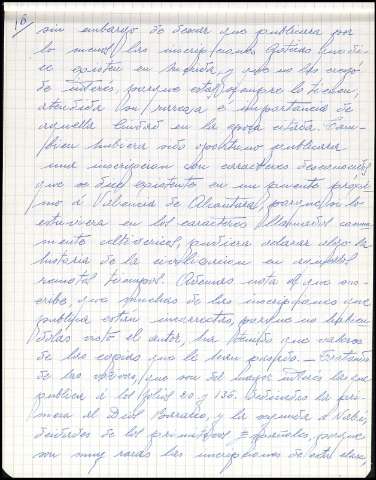 16/
sin embargo de desear que publicara por
lo menos las inscripciones góticas que di-
ce existen en Mérida, y que no las creyó
de interés, porque estas siempre lo tienen,
atendida son rareza é importancia de
aquella Ciudad en la época citada. Tam-
bien hubiera sido oportuno publicara
una inscripcion con caracteres desconocidos,
que se dice existente en un puente próxi-
mo á Valencia de Alcántara, porque si lo
estuviera en los caracteres llamados comun-
mente celtibéricos, pudiera aclarar algo la
historia de la civilizacion en aquellos
remotos tiempos. Ademas nota el que sus-
cribe, que muchas de las inscripciones que
publica estan incorrectas, porque no habien-
dolas visto el autor, ha tenido que valerse
de las copias que le han
de las que son del mayor interés las que
publica á los folios 20 y 136. Dedicadas la pri-
mera al Dios y la segunda á Nabi,
deidades de los primitivos Españoles, porque
son muy raras las inscripciones de esta clase,